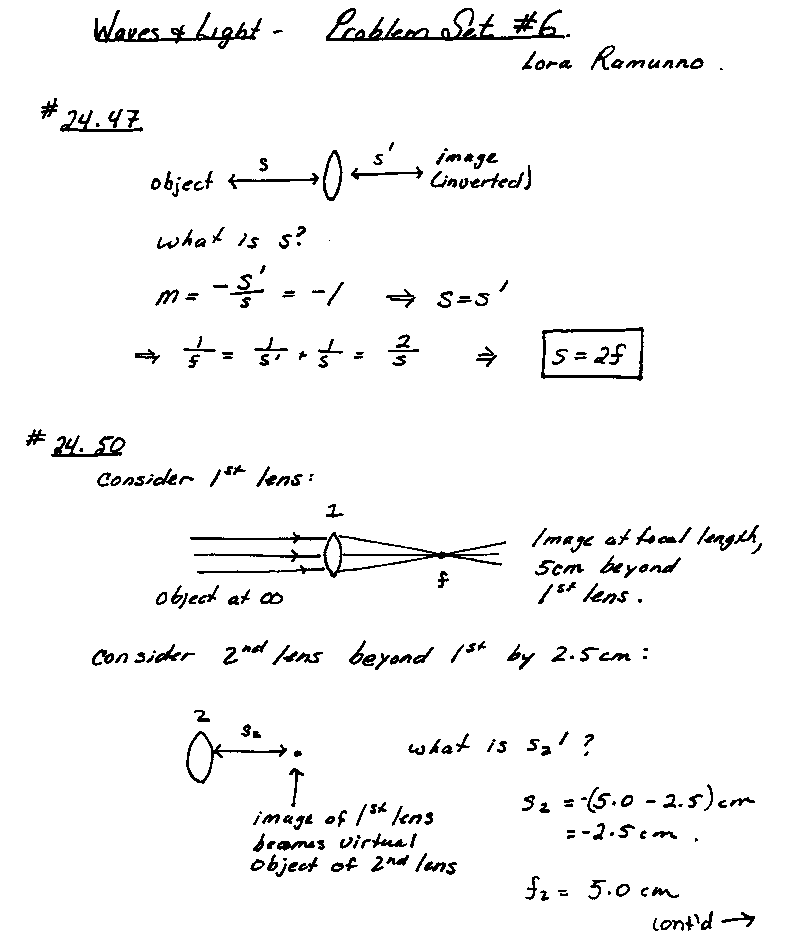 Waves & Light - Problem Set #6.
Lora Ramunno.
# 24.47
object s s' image (inverted)
what is s?
m = -s'/s = -1 ⇒ s = s'
⇒ 1/f = 1/s' + 1/s = 2/s ⇒ s = 2f
# 24.50
Consider 1st lens:
1
Image at focal length,
5cm beyond
1st lens.
f
Object at ∞
Consider 2nd lens beyond 1st by 2.5cm:
2
s₂
what is s₂'?
image of 1st lens
becomes virtual
object of 2nd lens
s₂ = -(5.0 - 2.5) cm
= -2.5 cm.
f₂ = 5.0 cm
cont'd →